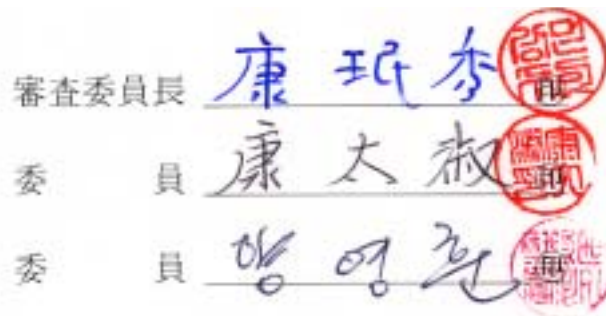 審査委員長 康 珉 秀 印
委 員 康 太 淑 印
委 員 방 영 훈 印